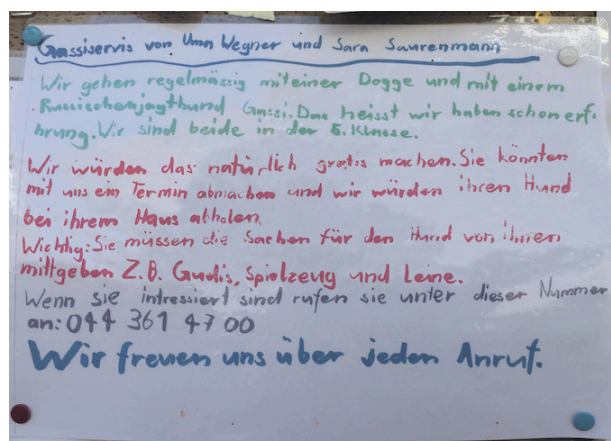 Gassiservis von Uma Wegner und Sara Saurenmann
Wir gehen regelmässig miteiner Dogge und mit einem
Russischenjagthund Gassi. Das heisst wir haben schon erf-
hrung. Wir sind beide in der 5. Klasse.
Wir würden das natürlich gratis machen. Sie könnten
mit uns ein Termin abmachen und wir würden ihren Hund
bei ihrem Haus abholen.
Wichtig: Sie müssen die Sachen für den Hund von ihnen
mittgeben Z.B. Gudis, Spielzeug und Leine.
Wenn sie intressiert sind rufen sie unter dieser Nummer
an: 044 361 47 00
Wir freuen uns über jeden Anruf.